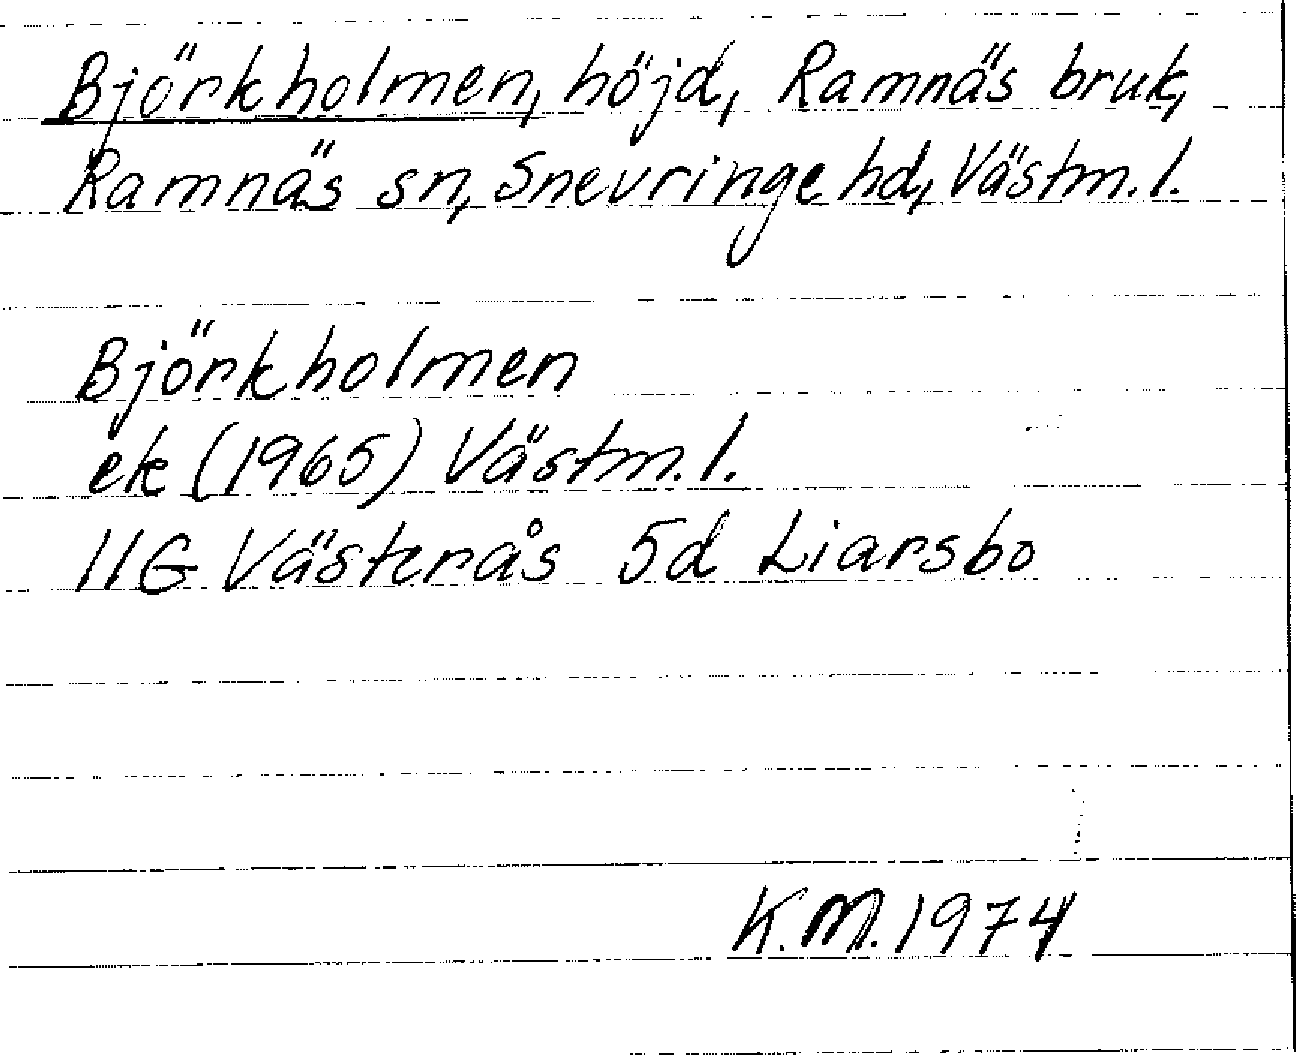 Björkholmen, höjd, Ramnäs bruk,
Ramnäs sn, Snevringe hd, Västm. l.
Björkholmen
ek (1965) Västm. l.
11G Västerås 5d Liarsbo
K.M. 1974